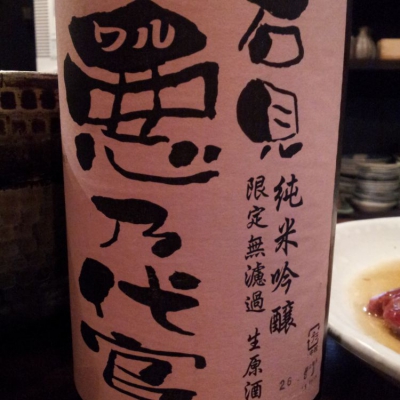 石見
ワル
悪乃代官
純米吟醸
限定無濾過 生原酒
26